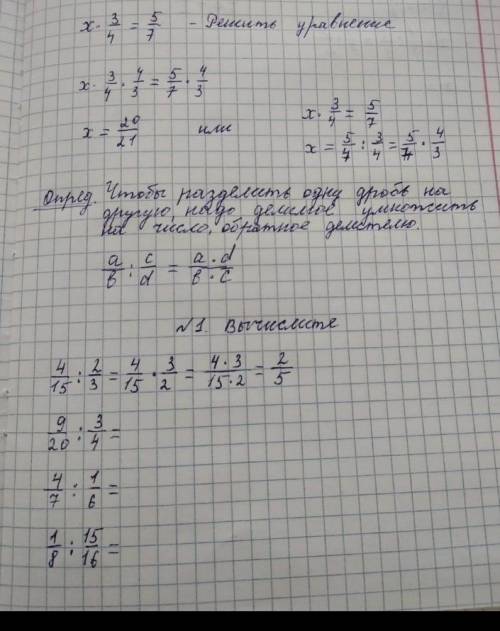 x · 3/4 = 5/7 - Решить уравнение
x · 3/4 · 4/3 = 5/7 · 4/3
x = 20/21 или
x · 3/4 = 5/7
x = 5/7 : 3/4 = 5/7 · 4/3
Опред. Чтобы разделить одну дробь на
другую, надо делимое умножить
на число, обратное делителю.
a/b : c/d = a · d / b · c
№1. Вычислите
4/15 : 2/3 = 4/15 · 3/2 = 4 · 3 / 15 · 2 = 2/5
9/20 : 3/4 =
4/7 : 1/6 =
1/8 : 15/16 =